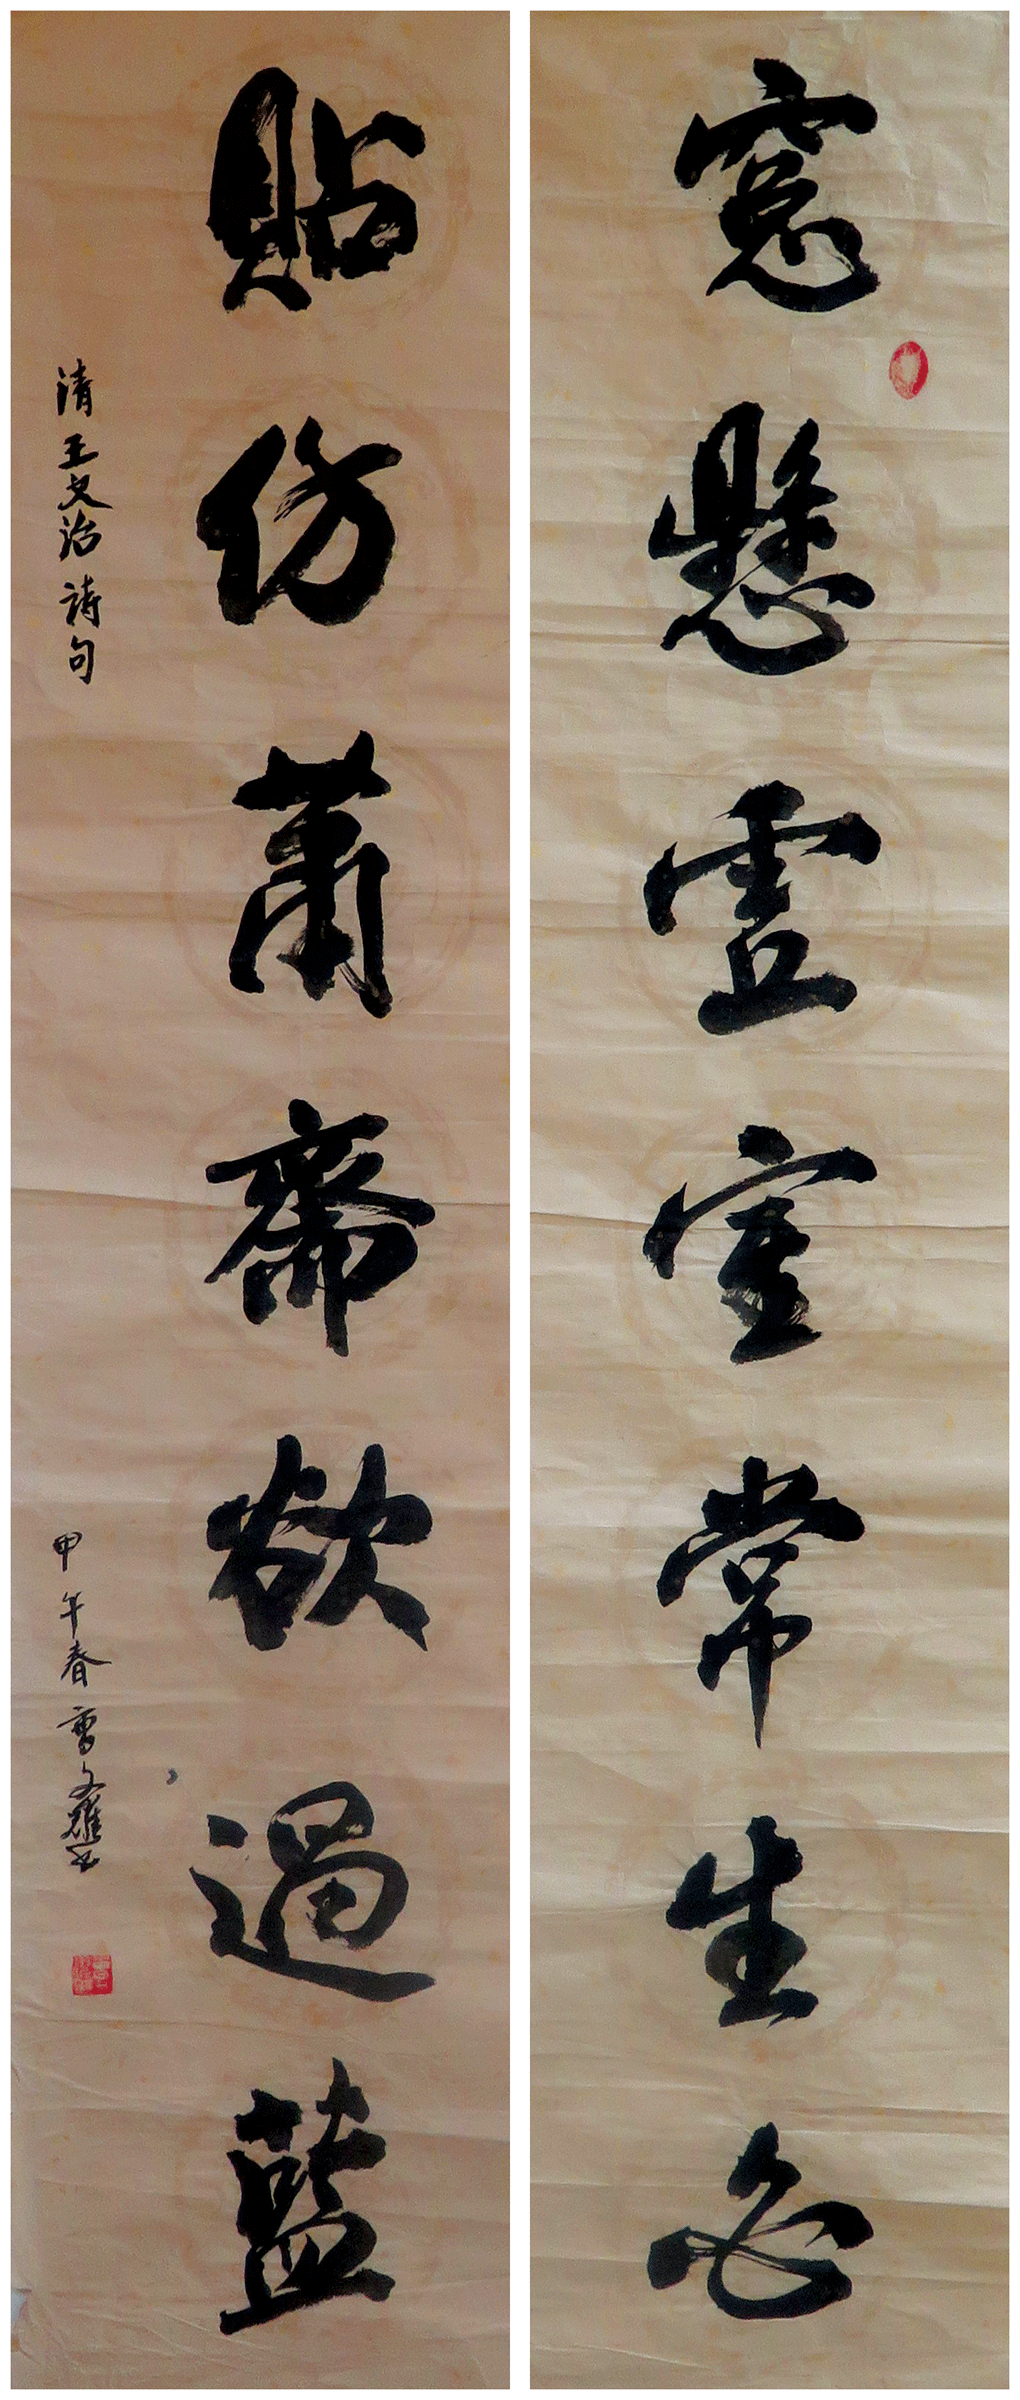 窓懸虛室常生白
貼仿蕭齋欲過藍
清王文治詩句
甲午春